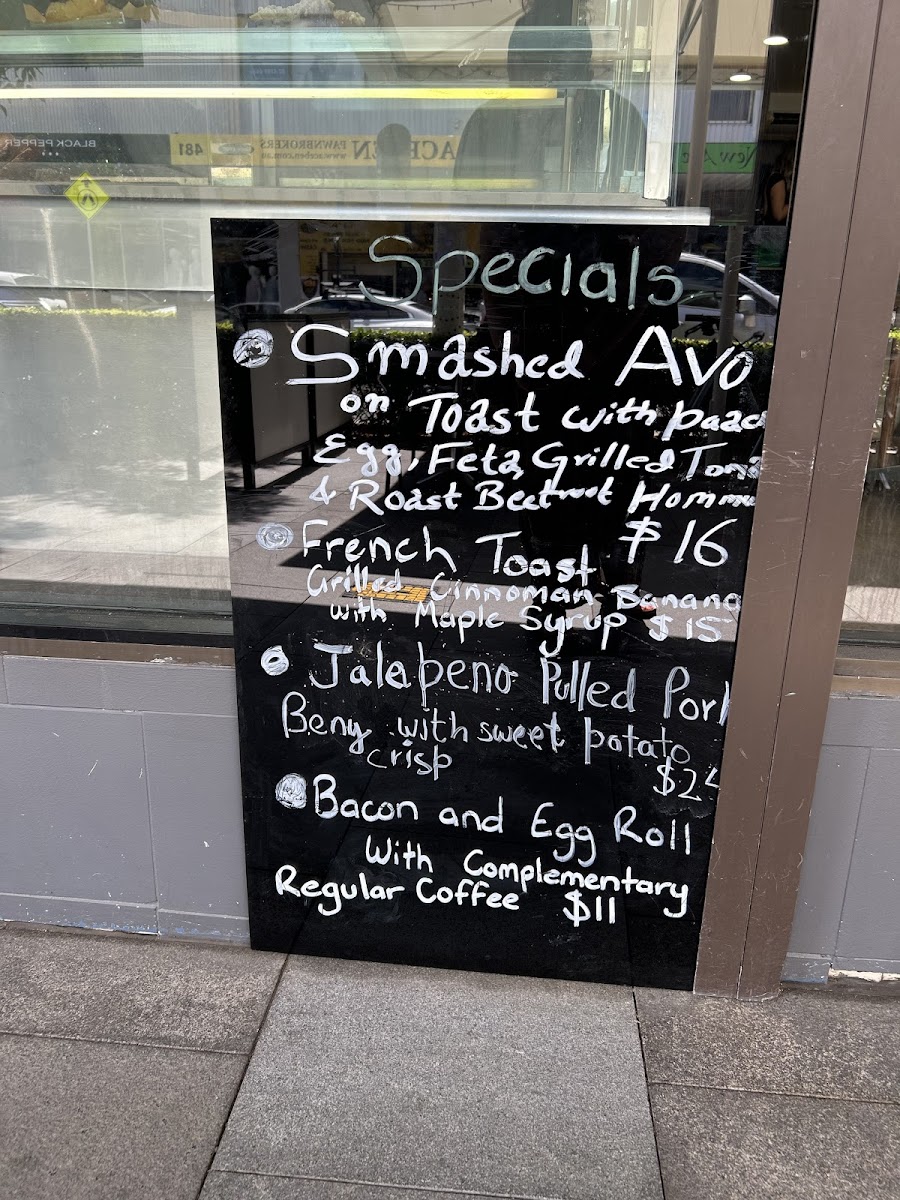 BLACK PEPPER
481
PAWNBROKERS
Specials
Smashed Avo
on Toast with paac
Egg, Feta, Grilled Toma
& Roast Beetroot Hommu
$16
French Toast
Grilled Cinnoman Banana
with Maple Syrup $15
Jalapeno Pulled Pork
Beny with sweet potato
crisp
$24
Bacon and Egg Roll
With Complementary
Regular Coffee $11